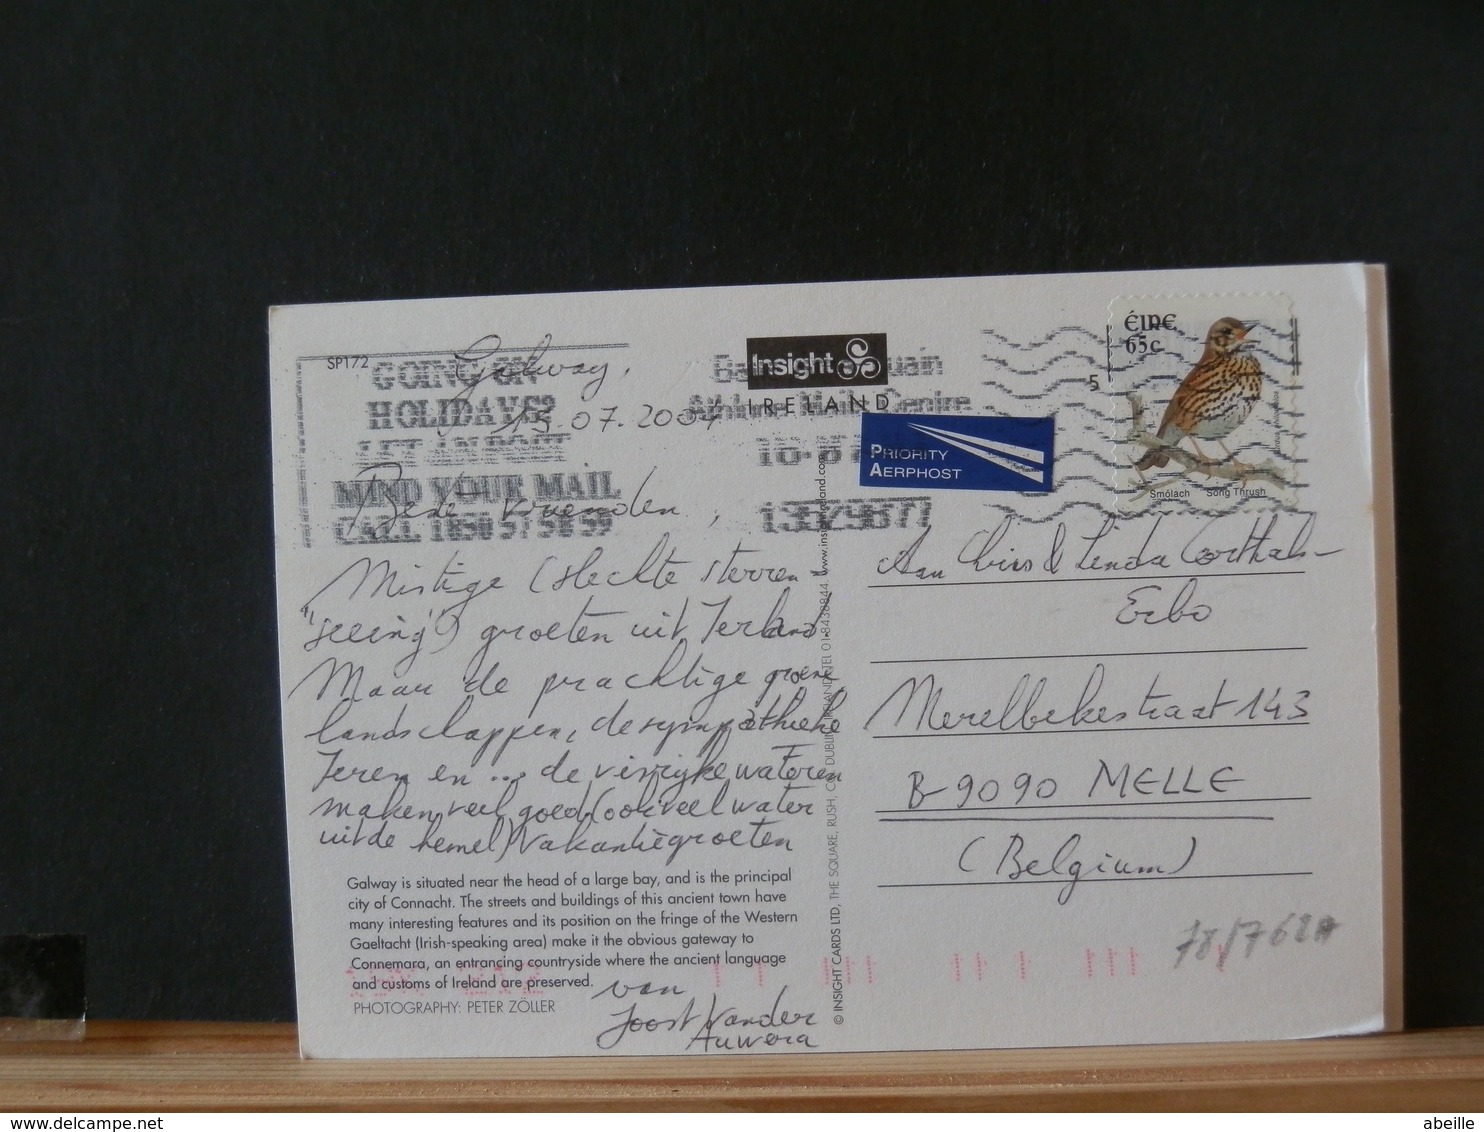 SP172
GOING ON
HOLIDAYS?
LET AN POST
MIND YOUR MAIL
CALL 1850 57 58 59
Galway,
15.07.2004
Insight
IRELAND
Athlone Mail Centre
PRIORITY
AERPHOST
5
ÉIRE
65c
Smólach Song Thrush
Beste vrienden,
Mistige (slechte sterren-
"seeing") groeten uit Ierland.
Maar de prachtige groene
landschappen, de sympathieke
Ieren en ... de visrijke wateren
maken veel goed (ook veel water
uit de hemel) vakantiegroeten
van
Joost Vander
Auwera
Galway is situated near the head of a large bay, and is the principal
city of Connacht. The streets and buildings of this ancient town have
many interesting features and its position on the fringe of the Western
Gaeltacht (Irish-speaking area) make it the obvious gateway to
Connemara, an entrancing countryside where the ancient language
and customs of Ireland are preserved.
PHOTOGRAPHY: PETER ZÖLLER
© INSIGHT CARDS LTD, THE SQUARE, RUSH, CO. DUBLIN, IRELAND. TEL 01-8438844. www.insightireland.com
Aan Chris & Linda Corthals-
Erbo
Merelbekestraat 143
B-9090 MELLE
(Belgium)
78/762A
abeille